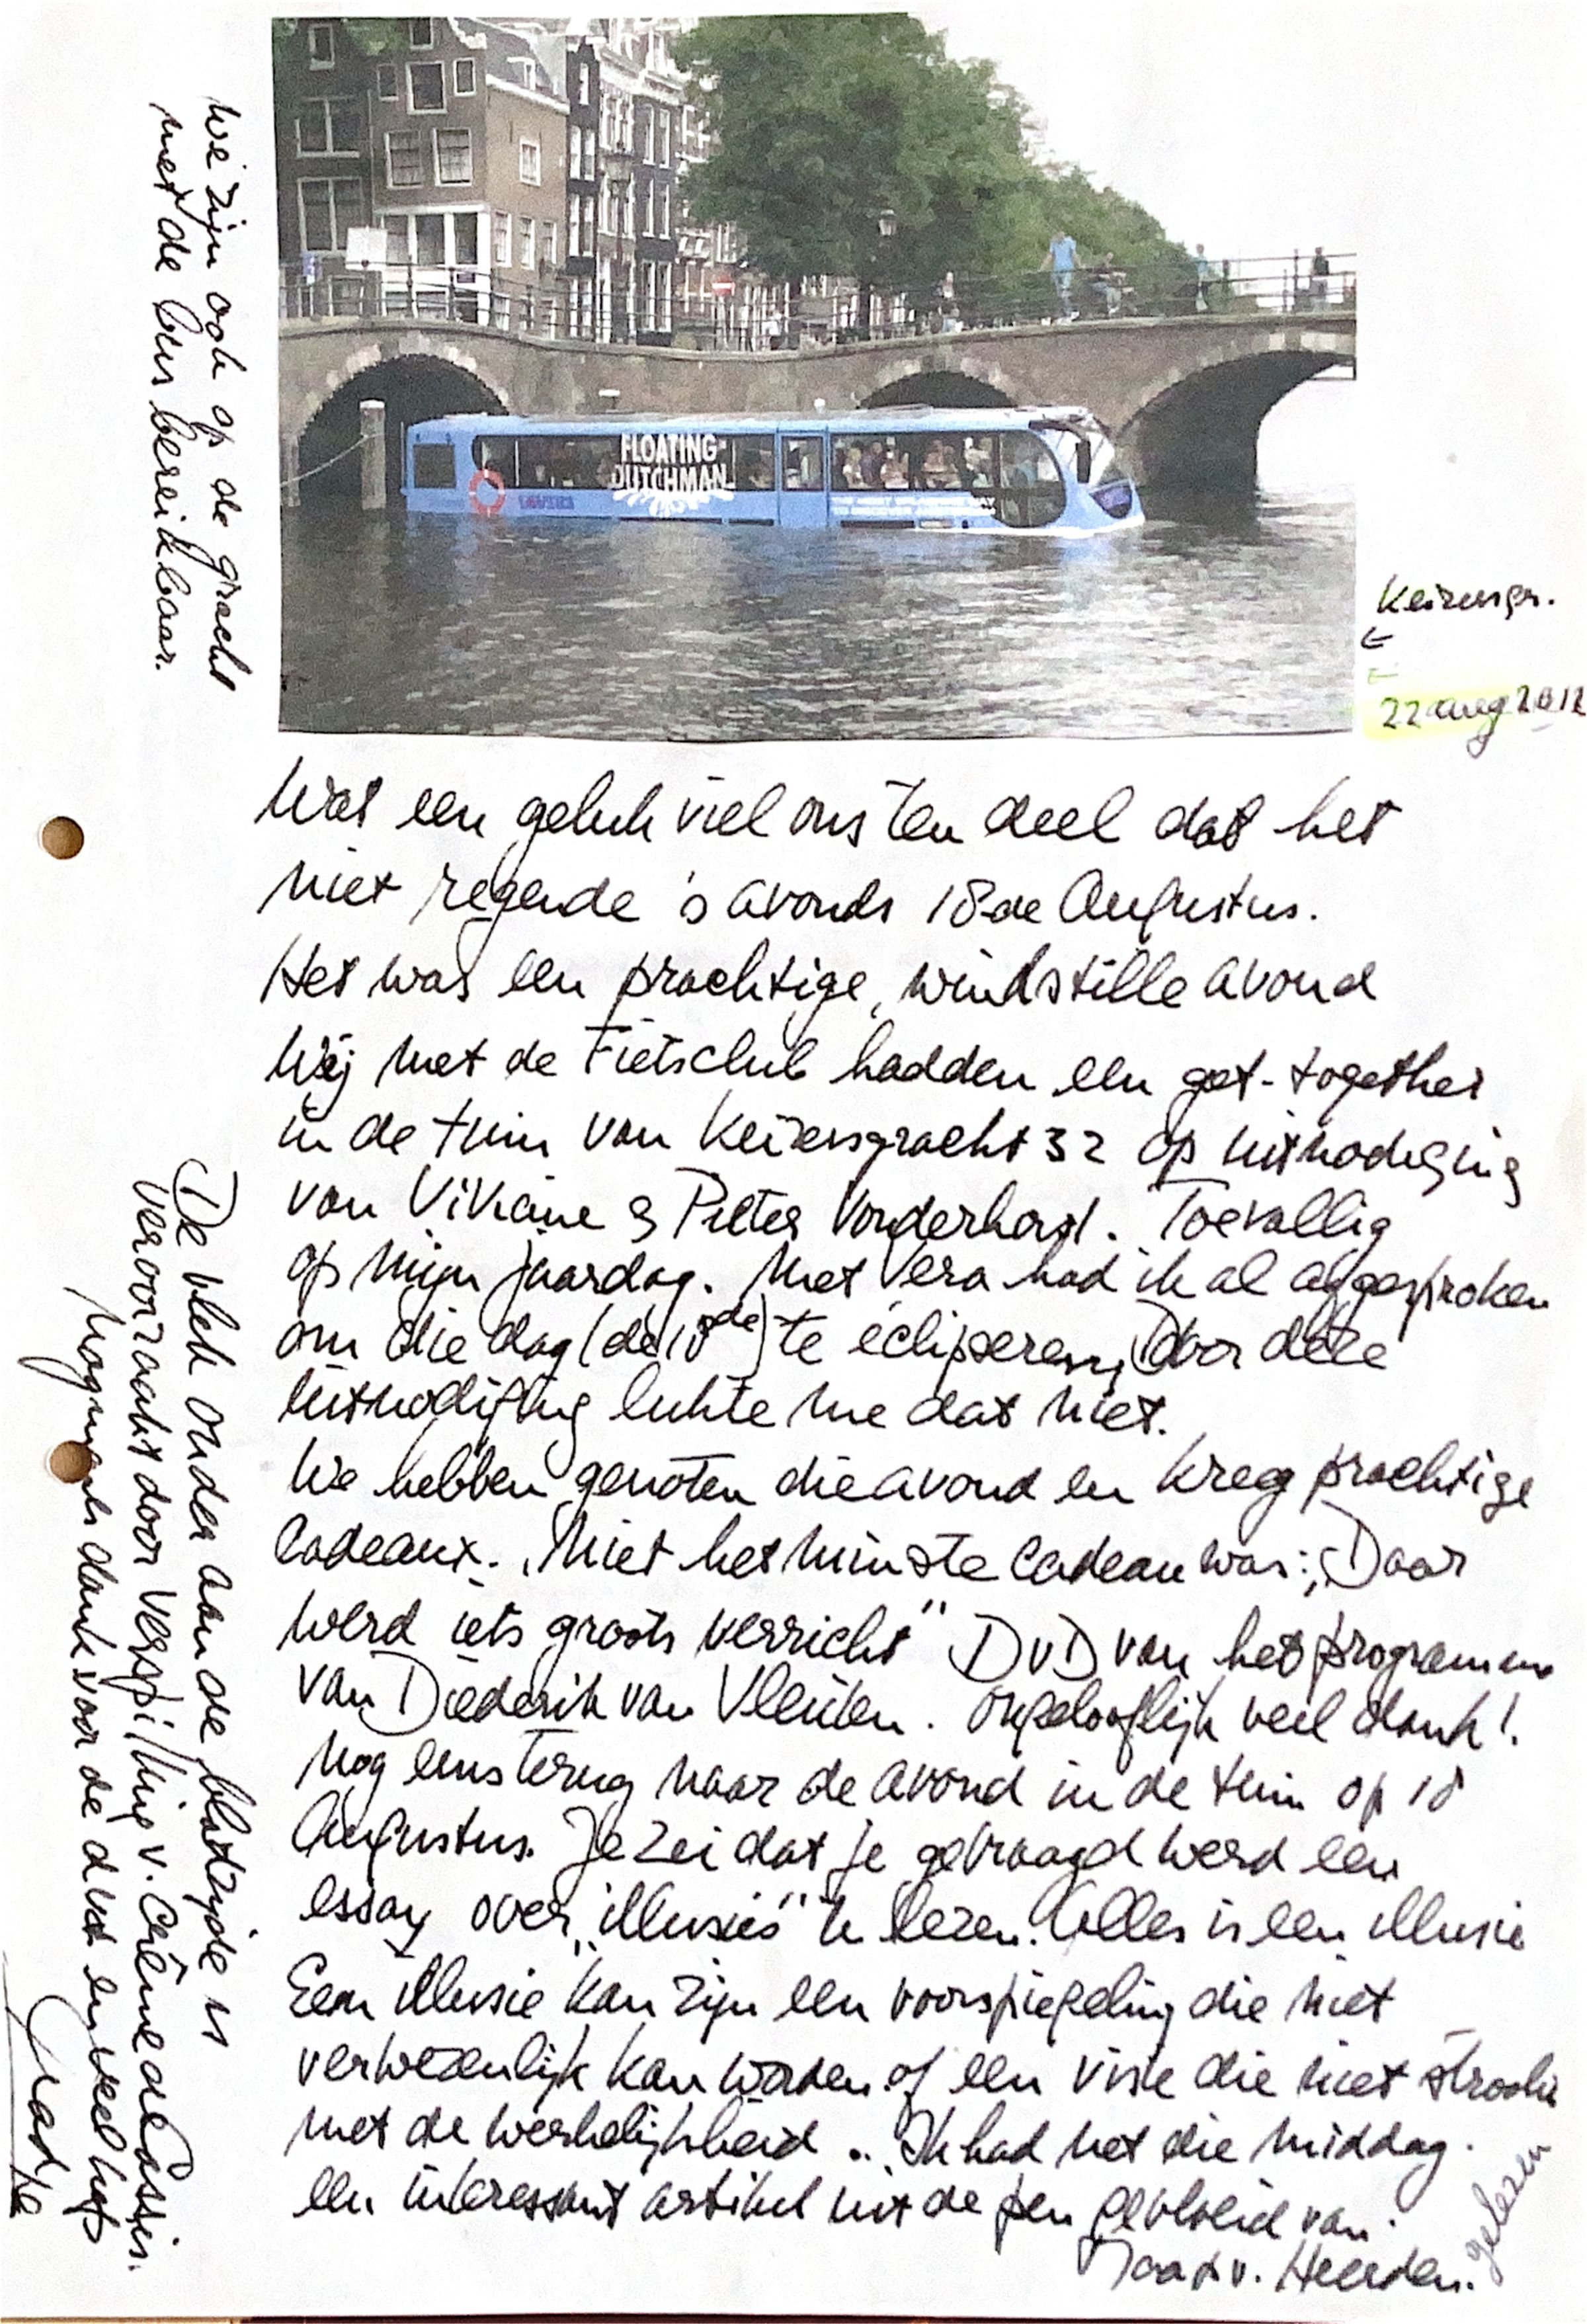 We zijn ook op de gracht
met de bus bereikbaar.
FLOATING
DUTCHMAN
Keizersgr.
22 aug 2012
Wat een geluk viel ons ten deel dat het
niet regende 's avonds 18de Augustus.
Het was een prachtige, windstille avond
Wij met de Fietsclub hadden een get-together
in de tuin van Keizersgracht 32 op uitnodiging
van Viviane & Pieter Vonderhorst. Toevallig
op mijn jaardag. Met Vera had ik al afgesproken
om die dag (de 18de) te éclipseren, Door deze
uitnodiging lukte me dat niet.
We hebben genoten die avond en kreeg prachtige
Cadeaux. Niet het minste cadeau was: „Daar
werd iets groots verricht" DVD van het programma
van Diederik van Vleuten. Ongelooflijk veel dank!
Nog eens terug naar de avond in de tuin op 18
Augustus. Je zei dat je gevraagd werd een
essay over „illusies" te lezen. Alles is een illusie
Een „illusie" kan zijn een voorspiegeling die niet
verwezenlijk kan worden of een visie die niet strookt
met de werkelijkheid .. Ik had net die middag
een interessant artikel uit de pen gevloeid van
Jaap v. Heerden. gelezen
De vlek onder aan de bladzijde is
veroorzaakt door verspilling v. Crème de Cassis.
Nogmaals dank voor de dvd en veel liefs